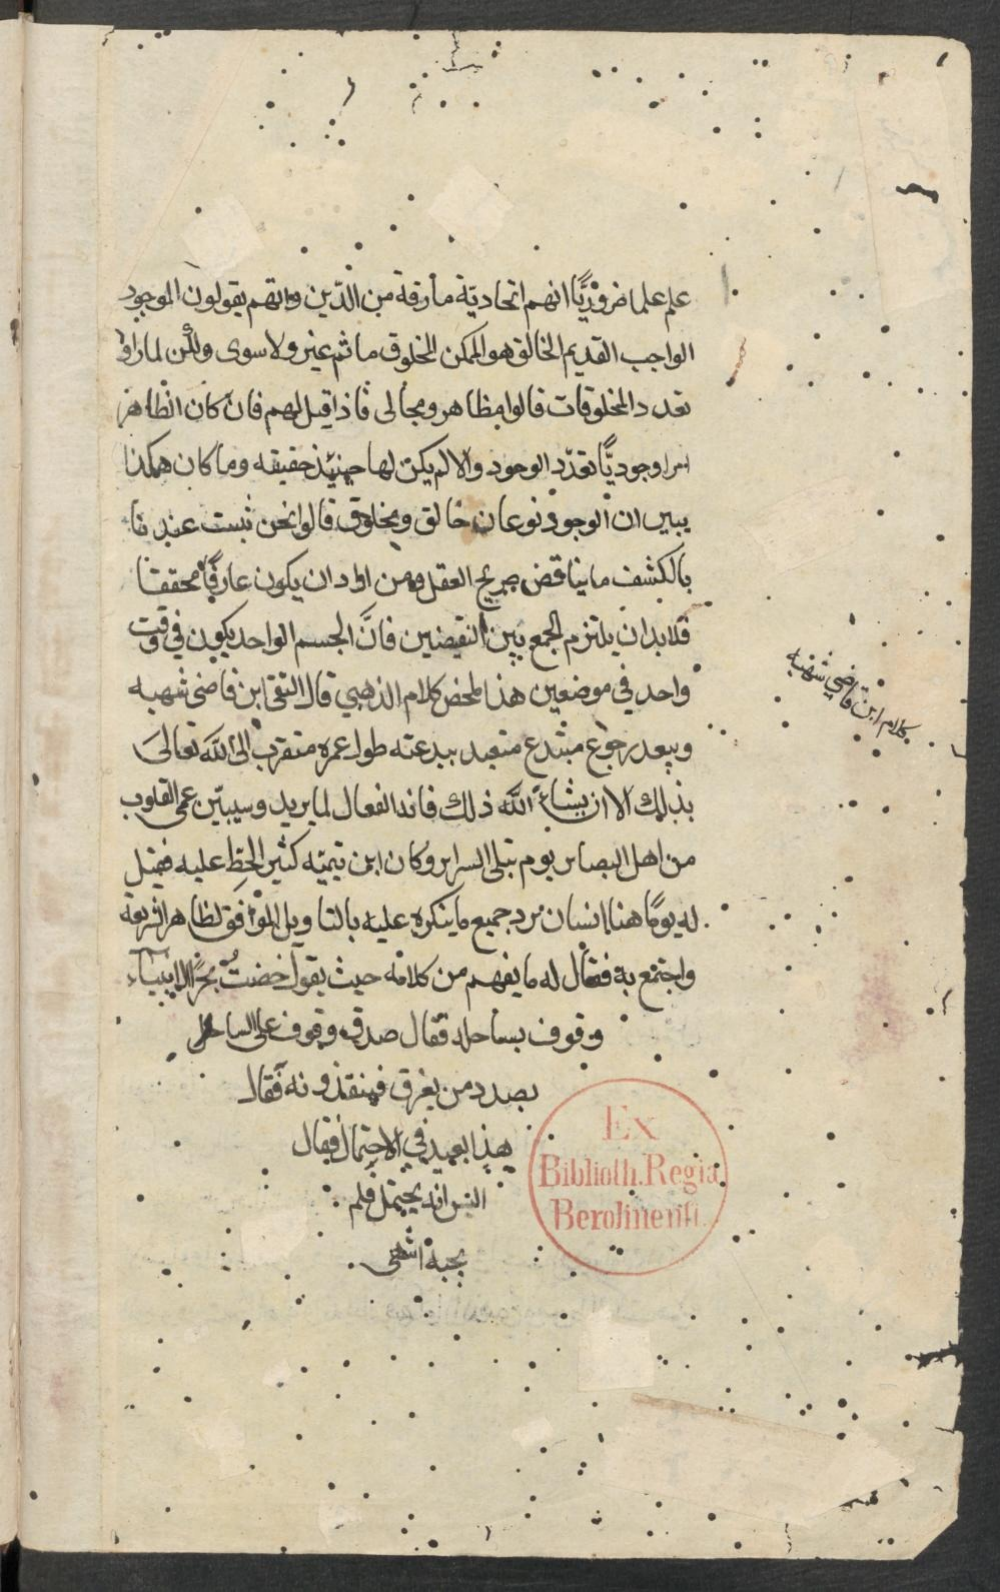 علم علما ضروريًّا انهم اتحادية مارقة من الدّين وانهم يقولون الموجود
الواجب القديم الخالق هو الممكن المخلوق ما ثم غير ولا سوى ولكن لما راوا
تعدد المخلوقات قالوا مظاهر ومجالى فاذا قيل لهم فان كان الظاهر
امرا وجوديًّا تعدّد الوجود والا لم يكن لها حينئذ حقيقه وما كان هكذا
يبين ان الوجود نوعان خالق ومخلوق قالوا نحن ثبت عندنا
بالكشف ما يناقض صريح العقل ومن اراد ان يكون عارفًا محققا
فلا بد ان يلتزم الجمع بين النقيضين فانَّ الجسم الواحد يكون في وقت
واحد في موضعين هذا ملخص كلام الذهبي قال التقى ابن قاضى شهبه
ويبعد رجوع مبتدع متعبد ببدعته طول عمره متقرب الى الله تعالى
بذلك الا ان يشاء الله ذلك فانه الفعال لما يريد وسيبيّن عمى القلوب
من اهل البصاير يوم تبلى السراير وكان ابن تيميّه كثير الحظ عليه فقيل
له يومًا هنا انسان يرد جميع ما ينكره عليه بالتاويل الموافق لظاهر الشريعة
واجتمع به فقال له ما يفهم من كلامه حيث يقول خضتُ بحرًا الانبياء
وقوف بساحله فقال صدق وقوف على الساحل
بصدد من يغرق فينقذونه فقال
هذا بعيد في الاحتمال فقال
اليس انه يحتمل فلم
يجبه انتهى
كلام ابن قاضي شهبه
Ex
Biblioth. Regia
Berolinensi.